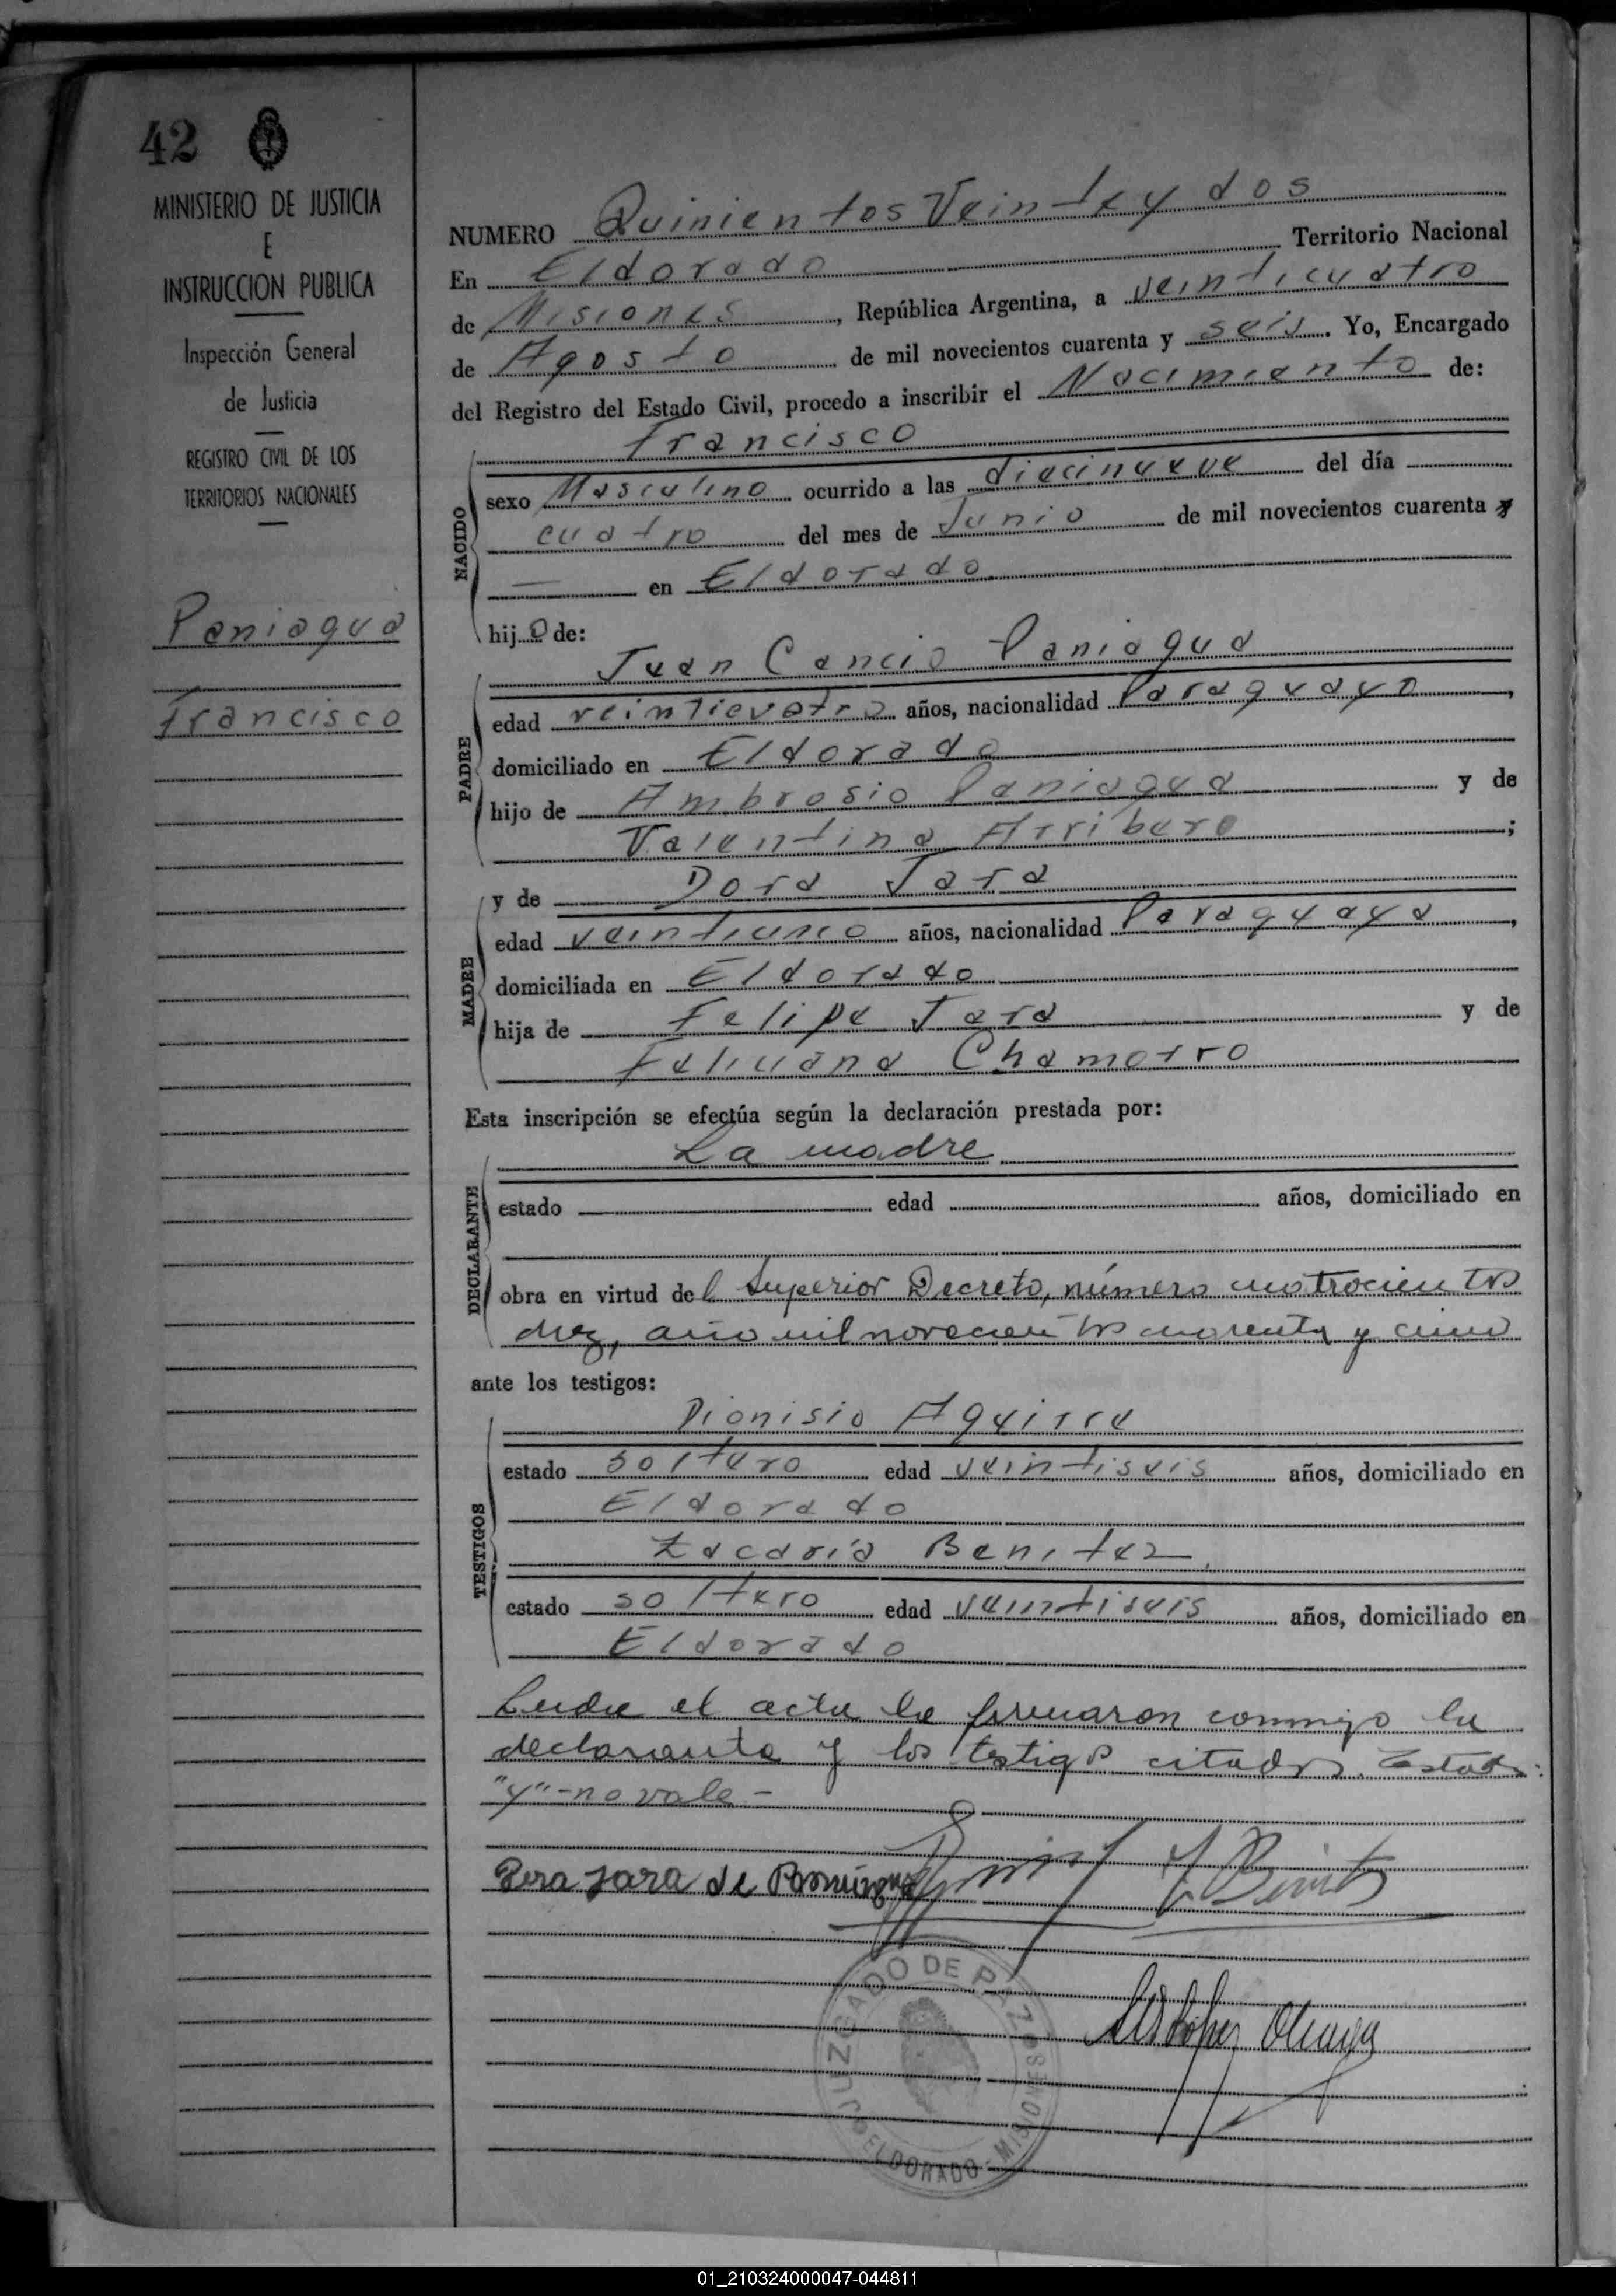 42
MINISTERIO DE JUSTICIA
E
INSTRUCCION PUBLICA
Inspección General
de Justicia
REGISTRO CIVIL DE LOS
TERRITORIOS NACIONALES
Paniagua
Francisco
NUMERO Quinientos Veinte y dos
En Eldorado Territorio Nacional
de Misiones, República Argentina, a veinticuatro
de Agosto de mil novecientos cuarenta y seis. Yo, Encargado
del Registro del Estado Civil, procedo a inscribir el Nacimiento de:
Francisco
NACIDO
sexo Masculino ocurrido a las diecinueve del día
cuatro del mes de Junio de mil novecientos cuarenta y
— en Eldorado
hijo de:
Juan Cancio Paniagua
PADRE
edad veinticuatro años, nacionalidad Paraguayo,
domiciliado en Eldorado
hijo de Ambrosio Paniagua y de
Valentina Arribero;
y de Dora Jara
MADRE
edad veinticinco años, nacionalidad Paraguaya,
domiciliada en Eldorado
hija de Felipe Jara y de
Feliciana Chamorro
Esta inscripción se efectúa según la declaración prestada por:
La madre
DECLARANTE
estado edad años, domiciliado en
obra en virtud del Superior Decreto, número cuatrocientos
diez, año mil novecientos cuarenta y cinco
ante los testigos:
Dionisio Aguirre
TESTIGOS
estado soltero edad veintiseis años, domiciliado en
Eldorado
Zacaría Benitez
estado soltero edad veintiseis años, domiciliado en
Eldorado
Leida el acta la firmaron conmigo la
declaranta y los testigos citados.
"y"-no vale-
Dora Jara de Paniagua
JUZGADO DE PAZ
ELDORADO - MISIONES
01_210324000047-044811